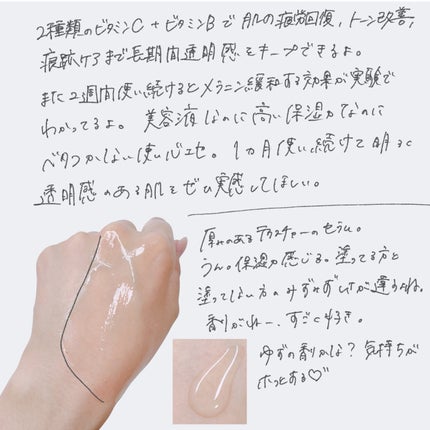 2種類のビタミンC＋ビタミンBで肌の疲労回復、トーン改善、
痕跡ケアまで長期間透明感をキープできるよ。
また2週間使い続けるとメラニン緩和する効果が実験で
わかってるよ。美容液なのに高い保湿力なのに
ベタつかない使い心地。1カ月使い続けて明るく
透明感のある肌をぜひ実感してほしい。
厚みのあるテクスチャーのセラム。
うん。保湿力感じる。塗ってる方と
塗ってない方のみずみずしさが違うよね。
香りがねー、すごく好き。
ゆずの香りかな？気持ちが
ホッとする♡